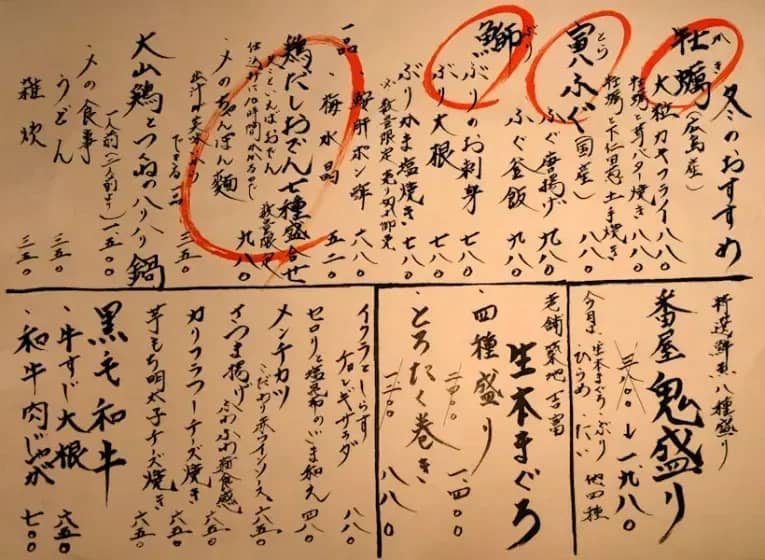 冬のおすすめ
牡蠣(広島産)
かき
大粒カキフライ 八八〇
牡蠣と芽バター焼き 八八〇
牡蠣と下仁田葱土手焼き 八八〇
寅ふぐ(国産)
とら
ふぐ唐揚げ 九八〇
ふぐ釜飯 九八〇
鰤
ぶり
ぶりのお刺身 七八〇
ぶり大根 七八〇
ぶりかま塩焼き 七八〇
※数量限定 売り切れ御免
一品
・鮟肝ポン酢 六八〇
・梅水晶 五二〇
鶏だしおでん七種盛合せ 九八〇
冬といえばおでん
仕込みに10時間かかるだし 数量限定
〆のちゃんぽん麺 三五〇
出汁が美味いから
できる一品
大山鶏とつくねのハリハリ鍋
一人前(二人前より) 一、五〇〇
・〆の食事
うどん 三五〇
雑炊 三五〇
特選鮮魚八種盛り
番屋 鬼盛り
三、八〇〇→一、九八〇
今月は、生本まぐろ・ぶり
ひらめ たい 他四種
老舗 築地 吉富
生本まぐろ
・四種盛り 一、四〇〇
・とろたく巻き 八八〇
イクラとしらす
チョレギサラダ 八八〇
セロリと塩昆布のごま和え 四八〇
メンチカツ
こだわり赤ワインソース 六八〇
さつま揚げ ふわふわ新食感 六五〇
カリフラワーチーズ焼き 六五〇
芋もち明太子チーズ焼き 六五〇
黒毛和牛
・牛すじ大根 六五〇
・和牛肉じゃが 七〇〇